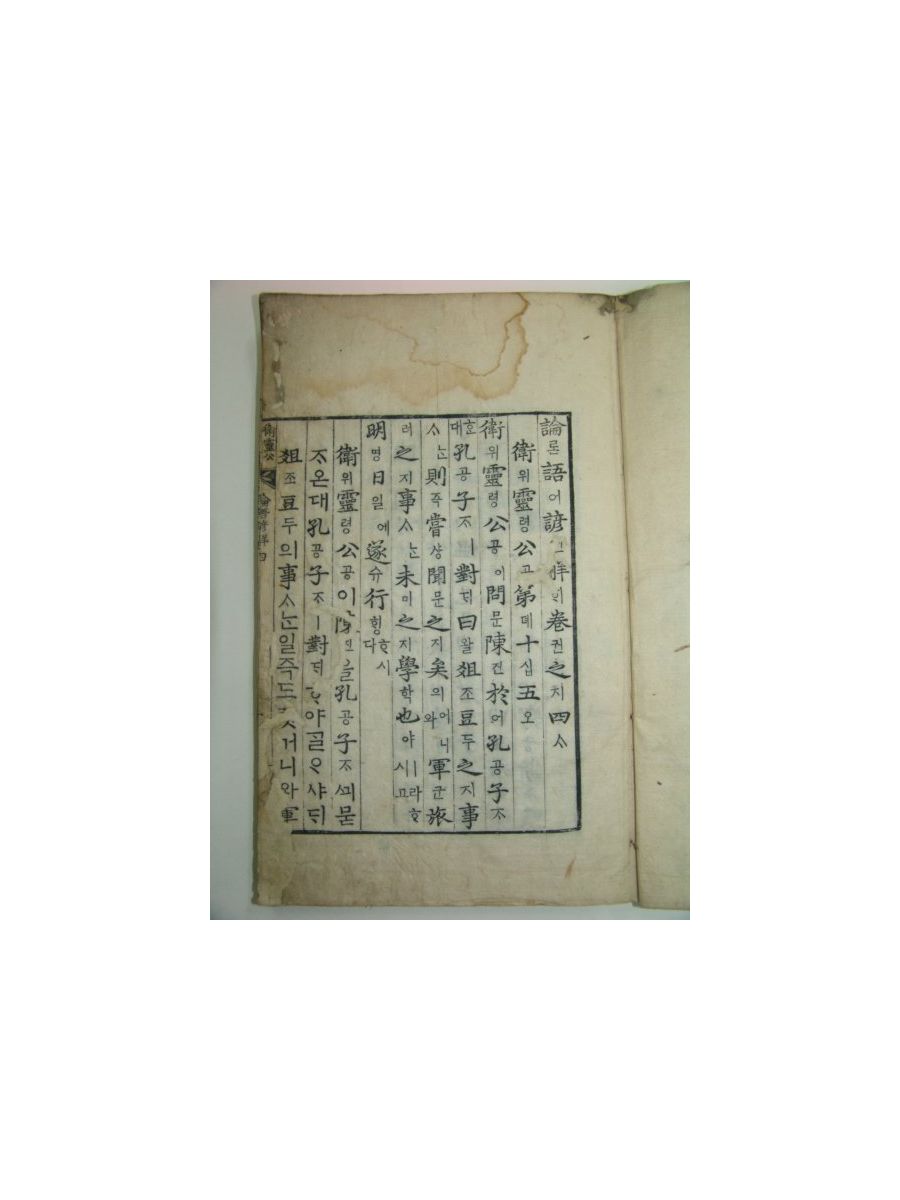 論론語어諺언解ᄒᆡ卷권之지四ᄉᆞ
衛위靈령公공第뎨十십五오
衛위靈령公공이問문陳딘於어孔공子ᄌᆞ
ᄒᆞ대孔공子ᄌᆞㅣ對ᄃᆡ曰왈俎조豆두之지事
ᄉᆞᄂᆞᆫ則즉嘗샹聞문之지矣의어니와軍군旅
려之지事ᄉᆞᄂᆞᆫ未미之지學학也야ㅣ라ᄒᆞ시고
明명日일에遂슈行ᄒᆡᆼᄒᆞ시다
衛위靈령公공이陳딘을孔공子ᄌᆞᄭᅴ묻
ᄌᆞ온대孔공子ᄌᆞㅣ對ᄃᆡᄒᆞ야ᄀᆞᆯᄋᆞ샤ᄃᆡ
俎조豆두의事ᄉᆞᄂᆞᆫ일즉드럿거니와軍
衛靈公 論語諺解四